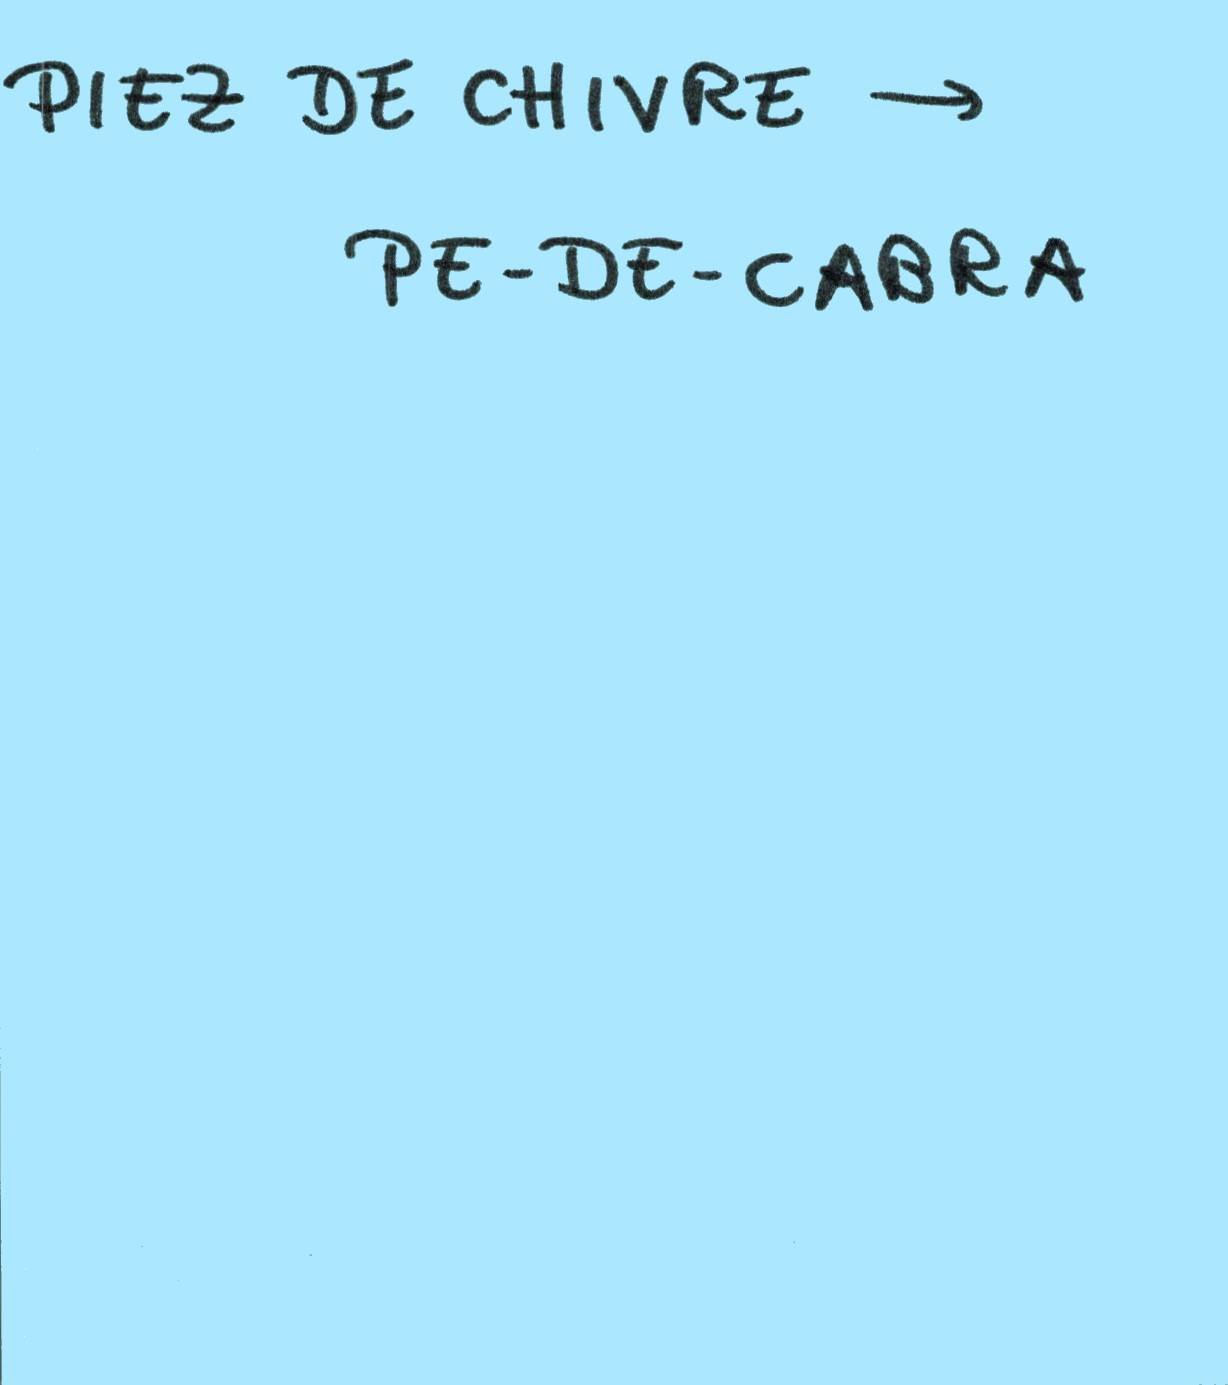 PIEZ DE CHIVRE →
PE-DE-CABRA